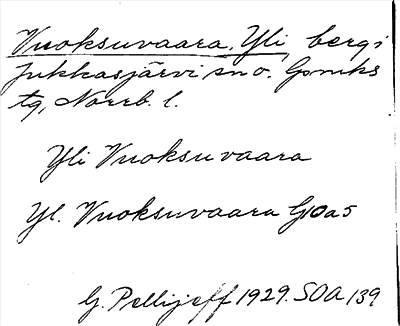 Vuoksuvaara, Yli, berg i
Jukkasjärvi sn o. Gpmlks
tg, Norrb. l.
Yli Vuoksuvaara
Yl. Vuoksuvaara G10a5
G. Pellijeff 1929. SOA 139